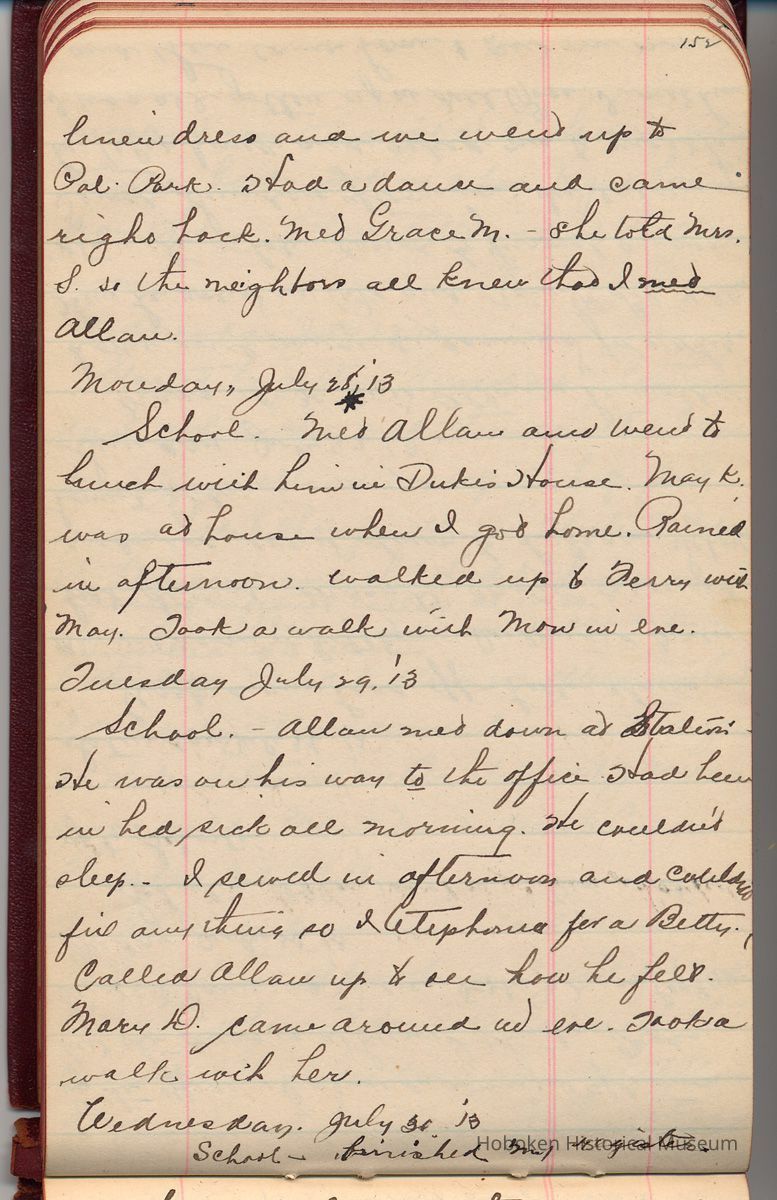 152
linen dress and we went up to
Pal. Park. Had a dance and came
right back. Met Grace M. - She told Mrs.
S. so the neighbors all knew that I met
Allan.
Monday, July 28, '13
School. Met Allan and went to
lunch with him in Duke's House. May K.
was at house when I got home. Rained
in afternoon. walked up to Ferry with
May. Took a walk with Mom in eve.
Tuesday July 29, '13
School. - Allan met down at Station -
He was on his way to the office. Had been
in bed sick all morning. He couldn't
sleep. - I sewed in afternoon and couldn't
fix any thing so I telephoned for a Betty.
Called Allan up to see how he felt.
Mary D. came around at eve. Took a
walk with her.
Wednesday. July 30 '13
School - finished my
Hoboken Historical Museum